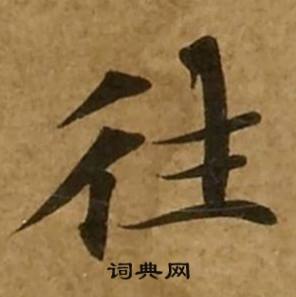 往
词典网